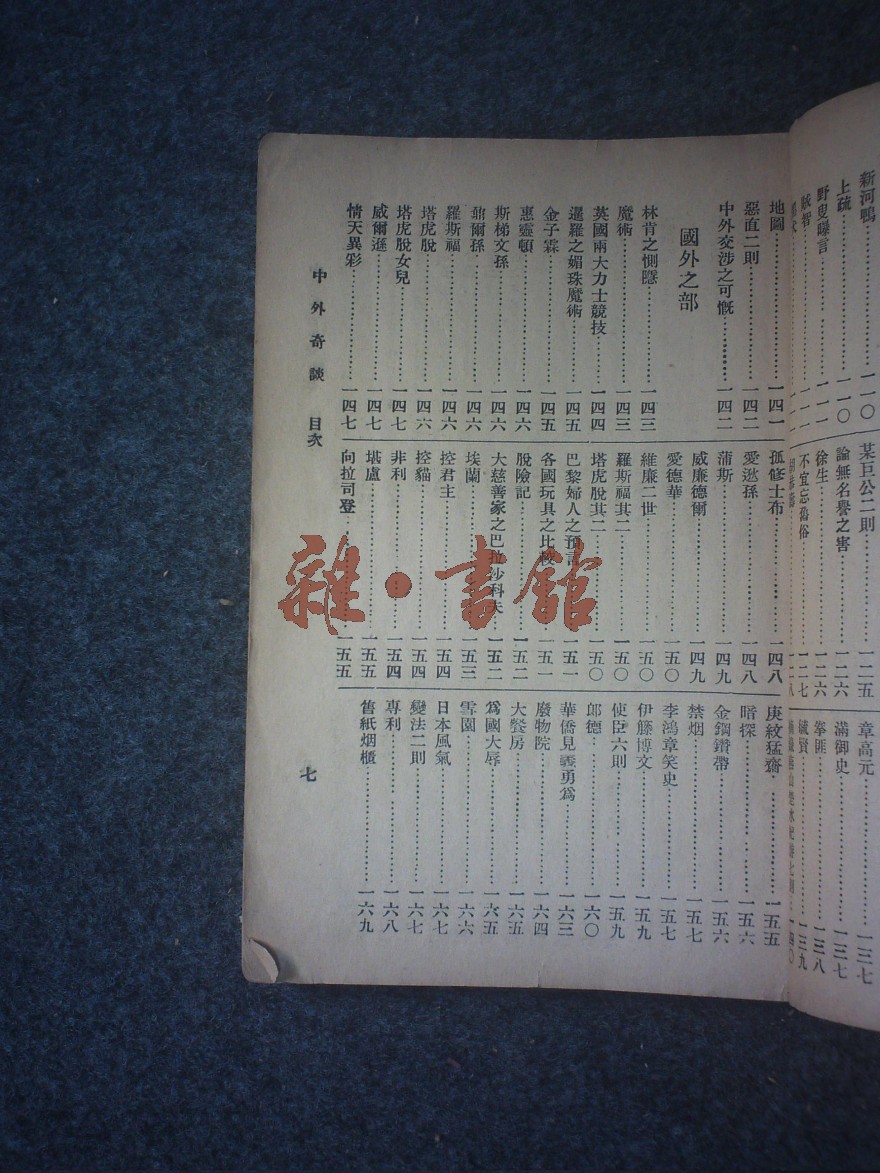 新河鴨 一一〇
上疏 一一〇
野叟曝言 一一一
賊智 一一一
某巨公二則 一二五
論無名譽之害 一二六
徐生 一二六
不宜忘舊俗 一二七
一二八
章高元 一三七
滿御史 一三七
拳匪 一三八
毓賢 一三九
一四〇
地圖 一四一
惡直二則 一四二
中外交涉之可慨 一四二
國外之部
林肯之惻隱 一四三
魔術 一四三
英國兩大力士競技 一四四
暹羅之媚珠魔術 一四五
金子霖 一四五
惠靈頓 一四六
斯梯文孫 一四六
鼐爾孫 一四六
羅斯福 一四六
塔虎脫 一四六
塔虎脫女兒 一四七
威爾遜 一四七
情天異彩 一四七
孤修士布 一四八
愛遜孫 一四八
蒲斯 一四九
威廉德爾 一四九
愛德華 一五〇
維廉二世 一五〇
羅斯福其二 一五〇
塔虎脫其二 一五〇
巴黎婦人之預言 一五一
各國玩具之比較 一五一
脫險記 一五二
大慈善家之巴拉沙科夫 一五二
埃蘭 一五三
控君主 一五四
控貓 一五四
非利 一五四
堪盧 一五五
向拉司登 一五五
庚紋猛齋 一五五
暗探 一五六
金鋼鑽帶 一五六
禁烟 一五七
李鴻章笑史 一五七
伊藤博文 一五九
使臣六則 一五九
郎德 一六〇
華僑見義勇爲 一六三
廢物院 一六四
大餐房 一六五
爲國大辱 一六五
雪園 一六六
日本風氣 一六七
變法二則 一六七
專利 一六八
舊紙烟櫃 一六九
中外奇談 目次
七
雜·書館